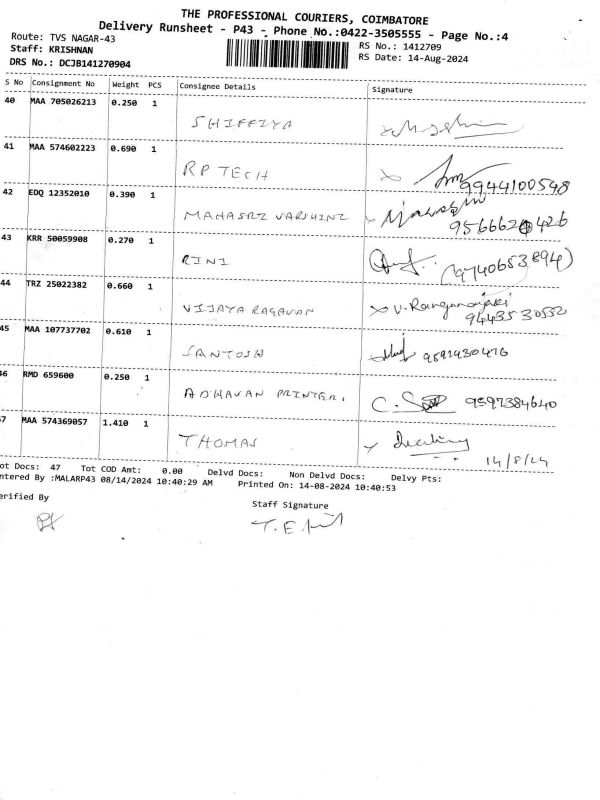 THE PROFESSIONAL COURIERS, COIMBATORE
Delivery Runsheet - P43 - Phone No.:0422-3505555 - Page No.:4
Route: TVS NAGAR-43
RS No.: 1412709
Staff: KRISHNAN
RS Date: 14-Aug-2024
DRS No.: DCJB141270904
S No Consignment No Weight PCS Consignee Details Signature
40 MAA 705026213 0.250 1
SHIFFIYA
41 MAA 574602223 0.690 1
RP TECH
9944100548
42 EDQ 12352010 0.390 1
MAHASRI VARSHINI
43 KRR 50059908 0.270 1
RINI
(9740653894)
44 TRZ 25022382 0.660 1
VIJAYA RAGAVAN
9443530552
45 MAA 107737702 0.610 1
SANTOSH
46 RMD 659600 0.250 1
ADHAVAN PRINTER.
9597384640
47 MAA 574369057 1.410 1
THOMAS
14/8/24
ot Docs: 47 Tot COD Amt: 0.00 Delvd Docs: Non Delvd Docs: Delvy Pts:
ntered By :MALARP43 08/14/2024 10:40:29 AM Printed On: 14-08-2024 10:40:53
erified By
Staff Signature